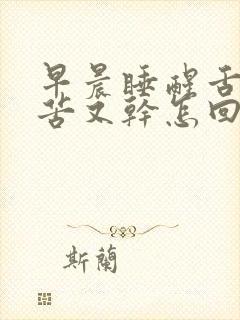 早晨睡醒舌
苦又幹怎回
斯蘭